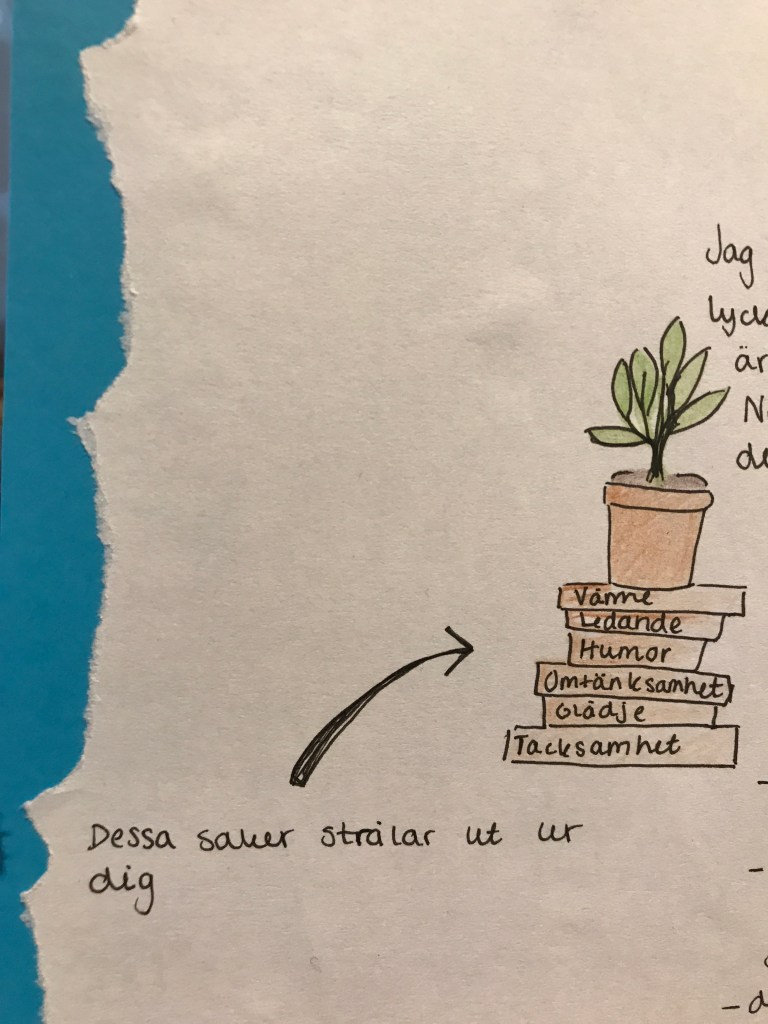 Jag
är
Värme
Ledande
Humor
Omtänksamhet
Glädje
Tacksamhet
Dessa saker strålar ut ur
dig